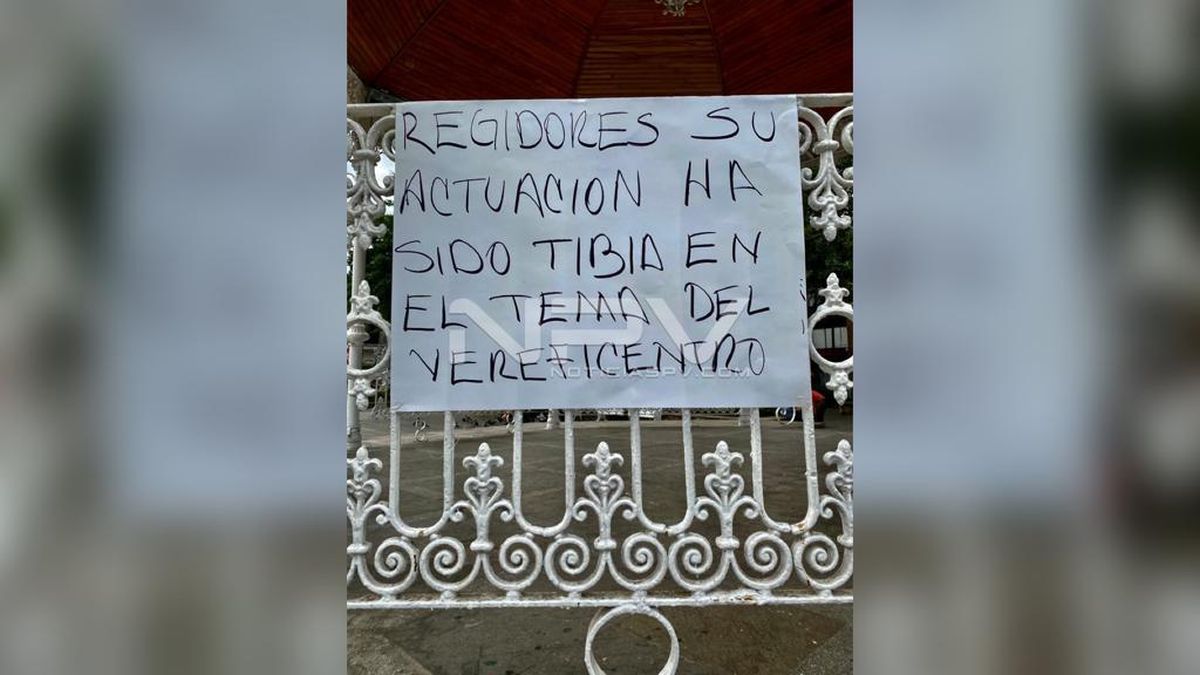 REGIDORES SU
ACTUACION HA
SIDO TIBIA EN
EL TEMA DEL
VEREFICENTRO
NPV
NOTICIASPV.COM